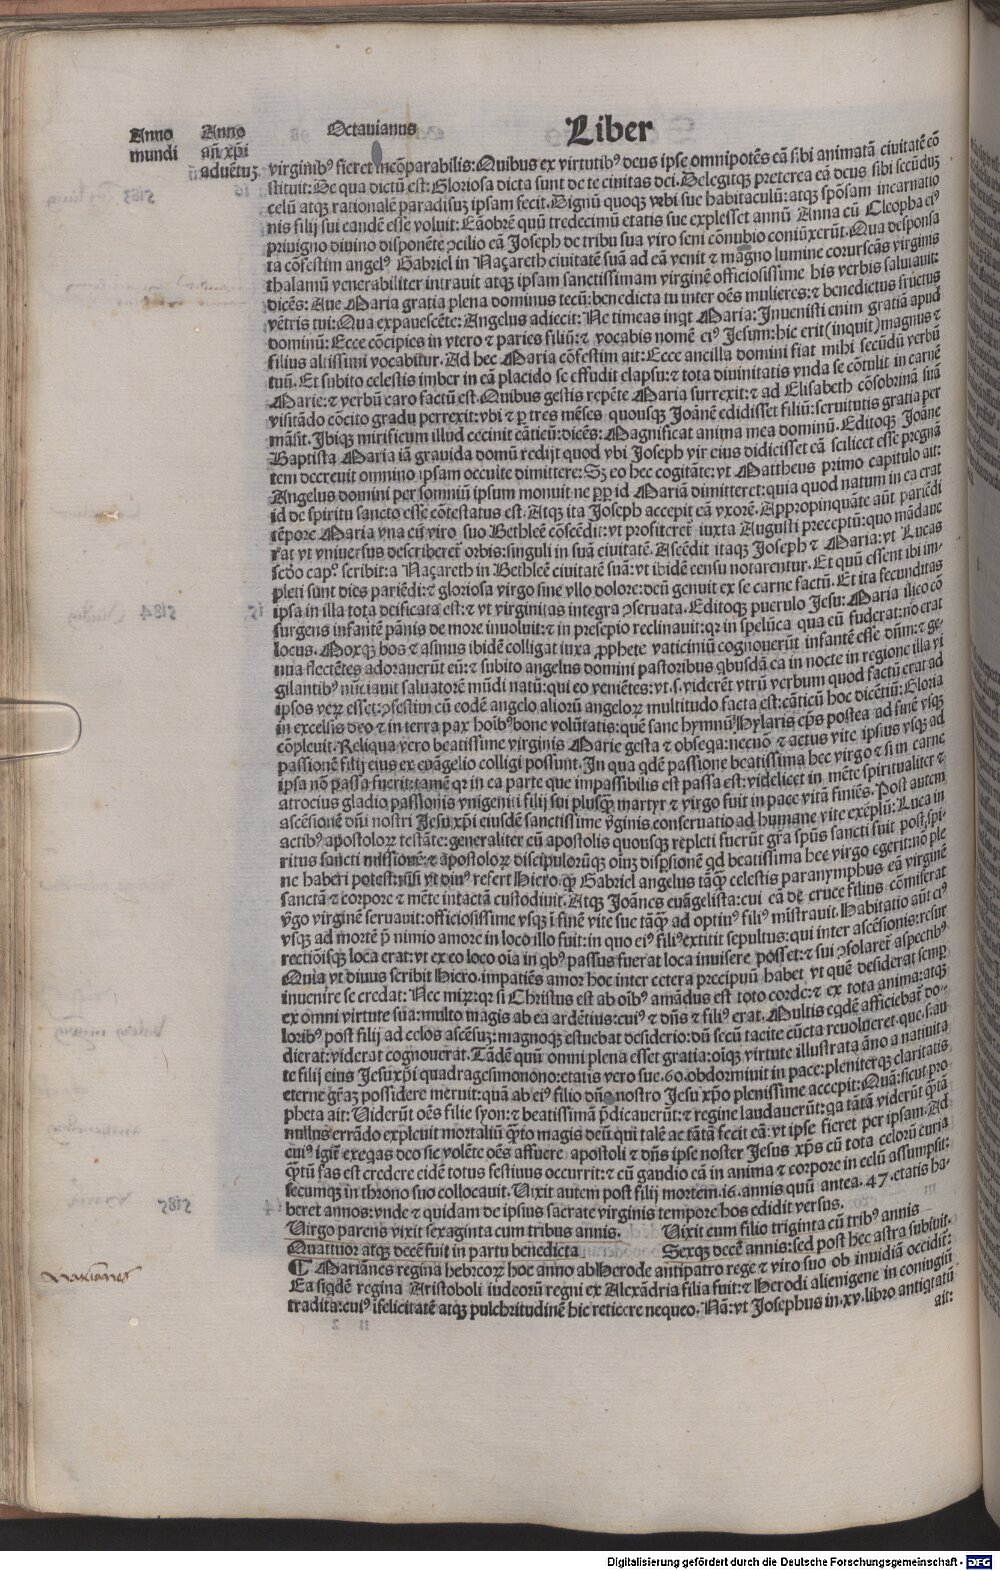 Anno mundi
Anno añ xp̃i aduẽtuz
Octauianus
Liber
virginibꝰ fieret incõparabilis: Quibus ex virtutibꝰ deus ipse omnipotẽs eã sibi animatã ciuitatẽ cõ
stituit: De qua dictũ est: Gloriosa dicta sunt de te ciuitas dei. Delegitqꝫ preterea eã deus sibi secũduꝫ
celũ atqꝫ rationalẽ paradisuꝫ ipsam fecit. Dignũ quoqꝫ verbi sue habitaculũ: atqꝫ sp̃osam incarnatio
nis filij sui eandẽ esse voluit: Eaobrẽ quũ tredecimũ etatis sue explesset annũ Anna cũ Cleopha eiꝰ
priuigno diuino disponẽte ↄcilio eã Joseph de tribu sua viro seni cõnubio coniũxerũt. Qua desponsa
ta cõfestim angelꝰ Gabriel in Naçareth ciuitatẽ suã ad eã venit ⁊ magno lumine coruscãs virginis
thalamũ venerabiliter intrauit atqꝫ ipsam sanctissimam virginẽ officiosissime his verbis salutauit:
dicẽs: Aue Maria gratia plena dominus tecũ: benedicta tu inter oẽs mulieres: ⁊ benedictus fructus
vẽtris tui: Qua expauescẽte: Angelus adiecit: Ne timeas inqt Maria: Inuenisti enim gratiã apud
dominũ: Ecce cõcipies in vtero ⁊ paries filiũ: ⁊ vocabis nomẽ eiꝰ Jesum: hic erit (inquit) magnus ⁊
filius altissimi vocabitur. Ad hec Maria cõfestim ait: Ecce ancilla domini fiat mihi secũdũ verbũ
tuũ. Et subito celestis imber in eã placido se effudit elapsu: ⁊ tota diuinitatis vnda se cõtulit in carnẽ
Marie: ⁊ verbũ caro factũ est. Quibus gestis repẽte Maria surrexit: ⁊ ad Elisabeth cõsobrinã suã
visitãdo cõcito gradu perrexit: vbi ⁊ ꝑ tres mẽses quousqꝫ Joãnẽ edidisset filiũ: seruitutis gratia per
mãsit. Ibiqꝫ mirificum illud cecinit cãticũ: dicẽs: Magnificat anima mea dominũ. Editoqꝫ Joãne
Baptista Maria iã grauida domũ redijt quod vbi Joseph vir eius didicisset eã scilicet esse pregnã
tem decreuit omnino ipsam occulte dimittere: Sꝫ eo hec cogitãte: vt Mattheus primo capitulo ait:
Angelus domini per somniũ ipsum monuit ne ꝓꝑ id Mariã dimitteret: quia quod natum in ea erat
id de spiritu sancto esse cõtestatus est. Atqꝫ ita Joseph accepit eã vxorẽ. Appropinquãte aũt pariẽdi
tẽpore Maria vna cũ viro suo Bethleẽ cõscẽdit: vt profiteret̃ iuxta Augusti preceptũ: quo mãdaue
rat vt vniuersus describeret̃ orbis: singuli in suã ciuitatẽ. Ascẽdit itaqꝫ Joseph ⁊ Maria: vt Lucas
scđo capᵒ. scribit: a Naçareth in Bethleẽ ciuitatẽ suã: vt ibidẽ censu notarentur. Et quũ essent ibi im-
pleti sunt dies pariẽdi: ⁊ gloriosa virgo sine vllo dolore: deũ genuit ex se carne factũ. Et ita fecunditas
ipsa in illa tota deificata est: ⁊ vt virginitas integra ↄseruata. Editoqꝫ puerulo Jesu: Maria ilico cõ
surgens infantẽ pãnis de more inuoluit: ⁊ in presepio reclinauit: qꝛ in spelũca qua eũ fuderat: nõ erat
locus. Moxqꝫ bos ⁊ asinus ibidẽ colligat iuxa ꝓphete vaticiniũ cognouerũt infantẽ esse dñm: ⁊ ge-
nua flectẽtes adorauerũt eũ: ⁊ subito angelus domini pastoribus qbusdã ea in nocte in regione illa vi
gilantibꝰ nũciauit saluatorẽ mũdi natũ: qui eo veniẽtes: vt .s. viderẽt vtrũ verbum quod factũ erat ad
ipsos veꝝ esset: ↄfestim cũ eodẽ angelo alioꝝ angeloꝝ multitudo facta est: cãticũ hoc dicẽtiũ: Gloria
in excelsis deo ⁊ in terra pax hoĩbꝰ bone volũtatis: quẽ sanc hymnũ Hylaris ep̃s postea ad finẽ vsqꝫ
cõpleuit. Reliqua vero beatissime virginis Marie gesta ⁊ obseqa: necnõ ⁊ actus vite ipsius vsqꝫ ad
passionẽ filij eius ex euãgelio colligi possunt. In qua qdẽ passione beatissima hec virgo ⁊ si in carne
ipsa nõ passa fuerit: tamẽ qꝛ in ea parte que impassibilis est passa est: videlicet in mẽte spiritualiter ⁊
atrocius gladio passionis vnigeniti filij sui plusqꝫ martyr ⁊ virgo fuit in pace vitã finiẽs. Post autem
ascẽsionẽ dñi nostri Jesu xp̃i eiusdẽ sanctissime ṽginis conseruatio ad humane vite exẽplũ: Luca in
actibꝰ apostoloꝝ testãte: generaliter cũ apostolis quousqꝫ repleti fuerũt gr̃a sp̃us sancti fuit post spi-
ritus sancti missionẽ: ⁊ apostoloꝝ discipuloruꝫqꝫ oĩuꝫ disp̃sionẽ qd beatissima hec virgo egerit: nõ ple
ne haberi potest: nisi vt diuꝰ refert Hiero. qꝫ Gabriel angelus tãqꝫ celestis paranymphus eã virginẽ
sanctã ⁊ corpore ⁊ mẽte intactã custodiuit. Atqꝫ Joãnes euãgelista: cui eã de cruce filius cõmiserat
ṽgo virginẽ seruauit: officiosissime vsqꝫ ĩ finẽ vite sue tãqꝫ ad optiuꝰ filiꝰ mĩstrauit. Habitatio aũt eiꝰ
vsqꝫ ad mortẽ p̃ nimio amore in loco illo fuit: in quo eiꝰ filiꝰ extitit sepultus: qui inter ascẽsionis: resur
rectiõisqꝫ loca erat: vt ex eo loco oĩa in qbꝰ passus fuerat loca inuisere posset: ⁊ sui ↄsolaret̃ aspectibꝰ
Quia vt diuus scribit Hiero. impatiẽs amor hoc inter cetera precipuũ habet vt quẽ desiderat semꝑ
inuenire se credat: Nec miꝝ: qꝛ si Christus est ab oĩbꝰ amãdus est toto corde: ⁊ ex tota anima: atqꝫ
ex omni virtute sua: multo magis ab ea ardẽtius: cuiꝰ ⁊ dñs ⁊ filiꝰ erat. Multis eqdẽ afficiebat̃ do-
loribꝰ post filij ad celos ascẽsuꝫ: magnoqꝫ estuebat desiderio: dũ secũ tacite cũcta reuolueret. que .s. au
dierat: viderat cognouerat. Tãdẽ quũ omni plena esset gratia: oĩqꝫ virtute illustrata ãno a natiuita
te filij eius Jesu xp̃i quadragesimonono: etatis vero sue .60. obdormiuit in pace: pleniterqꝫ claritatis
eterne gr̃aꝫ possidere meruit: quã ab eiꝰ filio dño nostro Jesu xp̃o plenissime accepit: Quã: sicut pro
pheta ait: Viderũt oẽs filie syon: ⁊ beatissimã p̃dicauerũt: ⁊ regine laudauerũt: qa tãtã viderũt qꝫtã
nullus errãdo expleuit mortaliũ qꝫto magis deũ. qui talẽ ac tãtã fecit eã: vt ipse fieret per ipsam. Ad
cuiꝰ igit̃ exeqas deo sic volẽte oẽs affuere apostoli ⁊ dñs ipse noster Jesus xp̃s cũ tota celorũ curia
qꝫtũ fas est credere eidẽ totus festiuus occurrit: ⁊ cũ gaudio eã in anima ⁊ corpore in celũ assumpsit:
secumqꝫ in throno suo collocauit. Vixit autem post filij mortem .16. annis quũ antea .47. etatis ha-
beret annos: vnde ⁊ quidam de ipsius sacrate virginis tempore hos edidit versus.
Virgo parens vixit sexaginta cum tribus annis. Vixit cum filio triginta cũ tribꝰ annis
Quattuor atqꝫ decẽ fuit in partu benedicta Sexqꝫ decẽ annis: sed post hec astra subiuit.
¶ Mariãnes regina hebreoꝝ hoc anno ab Herode antipatro rege ⁊ viro suo ob inuidiã occidit̃:
Ea siqdẽ regina Aristoboli iudeorũ regni ex Alexãdria filia fuit: ⁊ Herodi alienigene in coniugiũ
tradita: cuiꝰ ĩfelicitatẽ atqꝫ pulchritudinẽ hic reticere nequeo. Nã: vt Josephus in .xv. libro antiqtatũ
ait:
Marianes
Digitalisierung gefördert durch die Deutsche Forschungsgemeinschaft - DFG